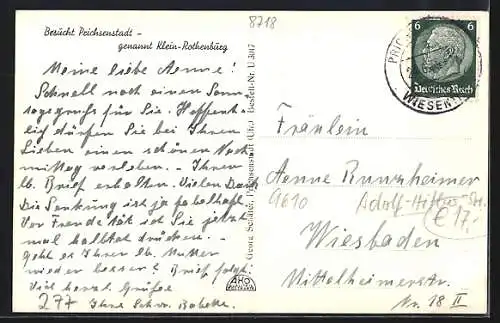 Besucht Prichsenstadt -
genannt Klein-Rothenburg
8718
Meine liebe Aenne!
Schnell noch einen Sonn-
tagsgruß für Sie. Hoffent-
lich dürfen Sie bei Ihren
Lieben einen schönen Nach-
mittag verleben. - Ihren
lb. Brief erhalten. Vielen Dank
Die Senkung ist ja fabelhaft
Vor Freude tät ich Sie jetzt
mal halbtot drücken. -
Geht es Ihrer lb. Mutter
wieder besser? Brief folgt.
Viel herzl. Grüße
277 Ihre Schw. Babette.
Georg Schäfer, Prichsenstadt (Ufr.) Bestell-Nr. U 3017
6 6
Deutsches Reich
WIESEN
Fräulein
Aenne Runzheimer
9610 Adolf-Hitler-St.
€17,-
Wiesbaden
Mittelheimerstr.
Nr. 18 II